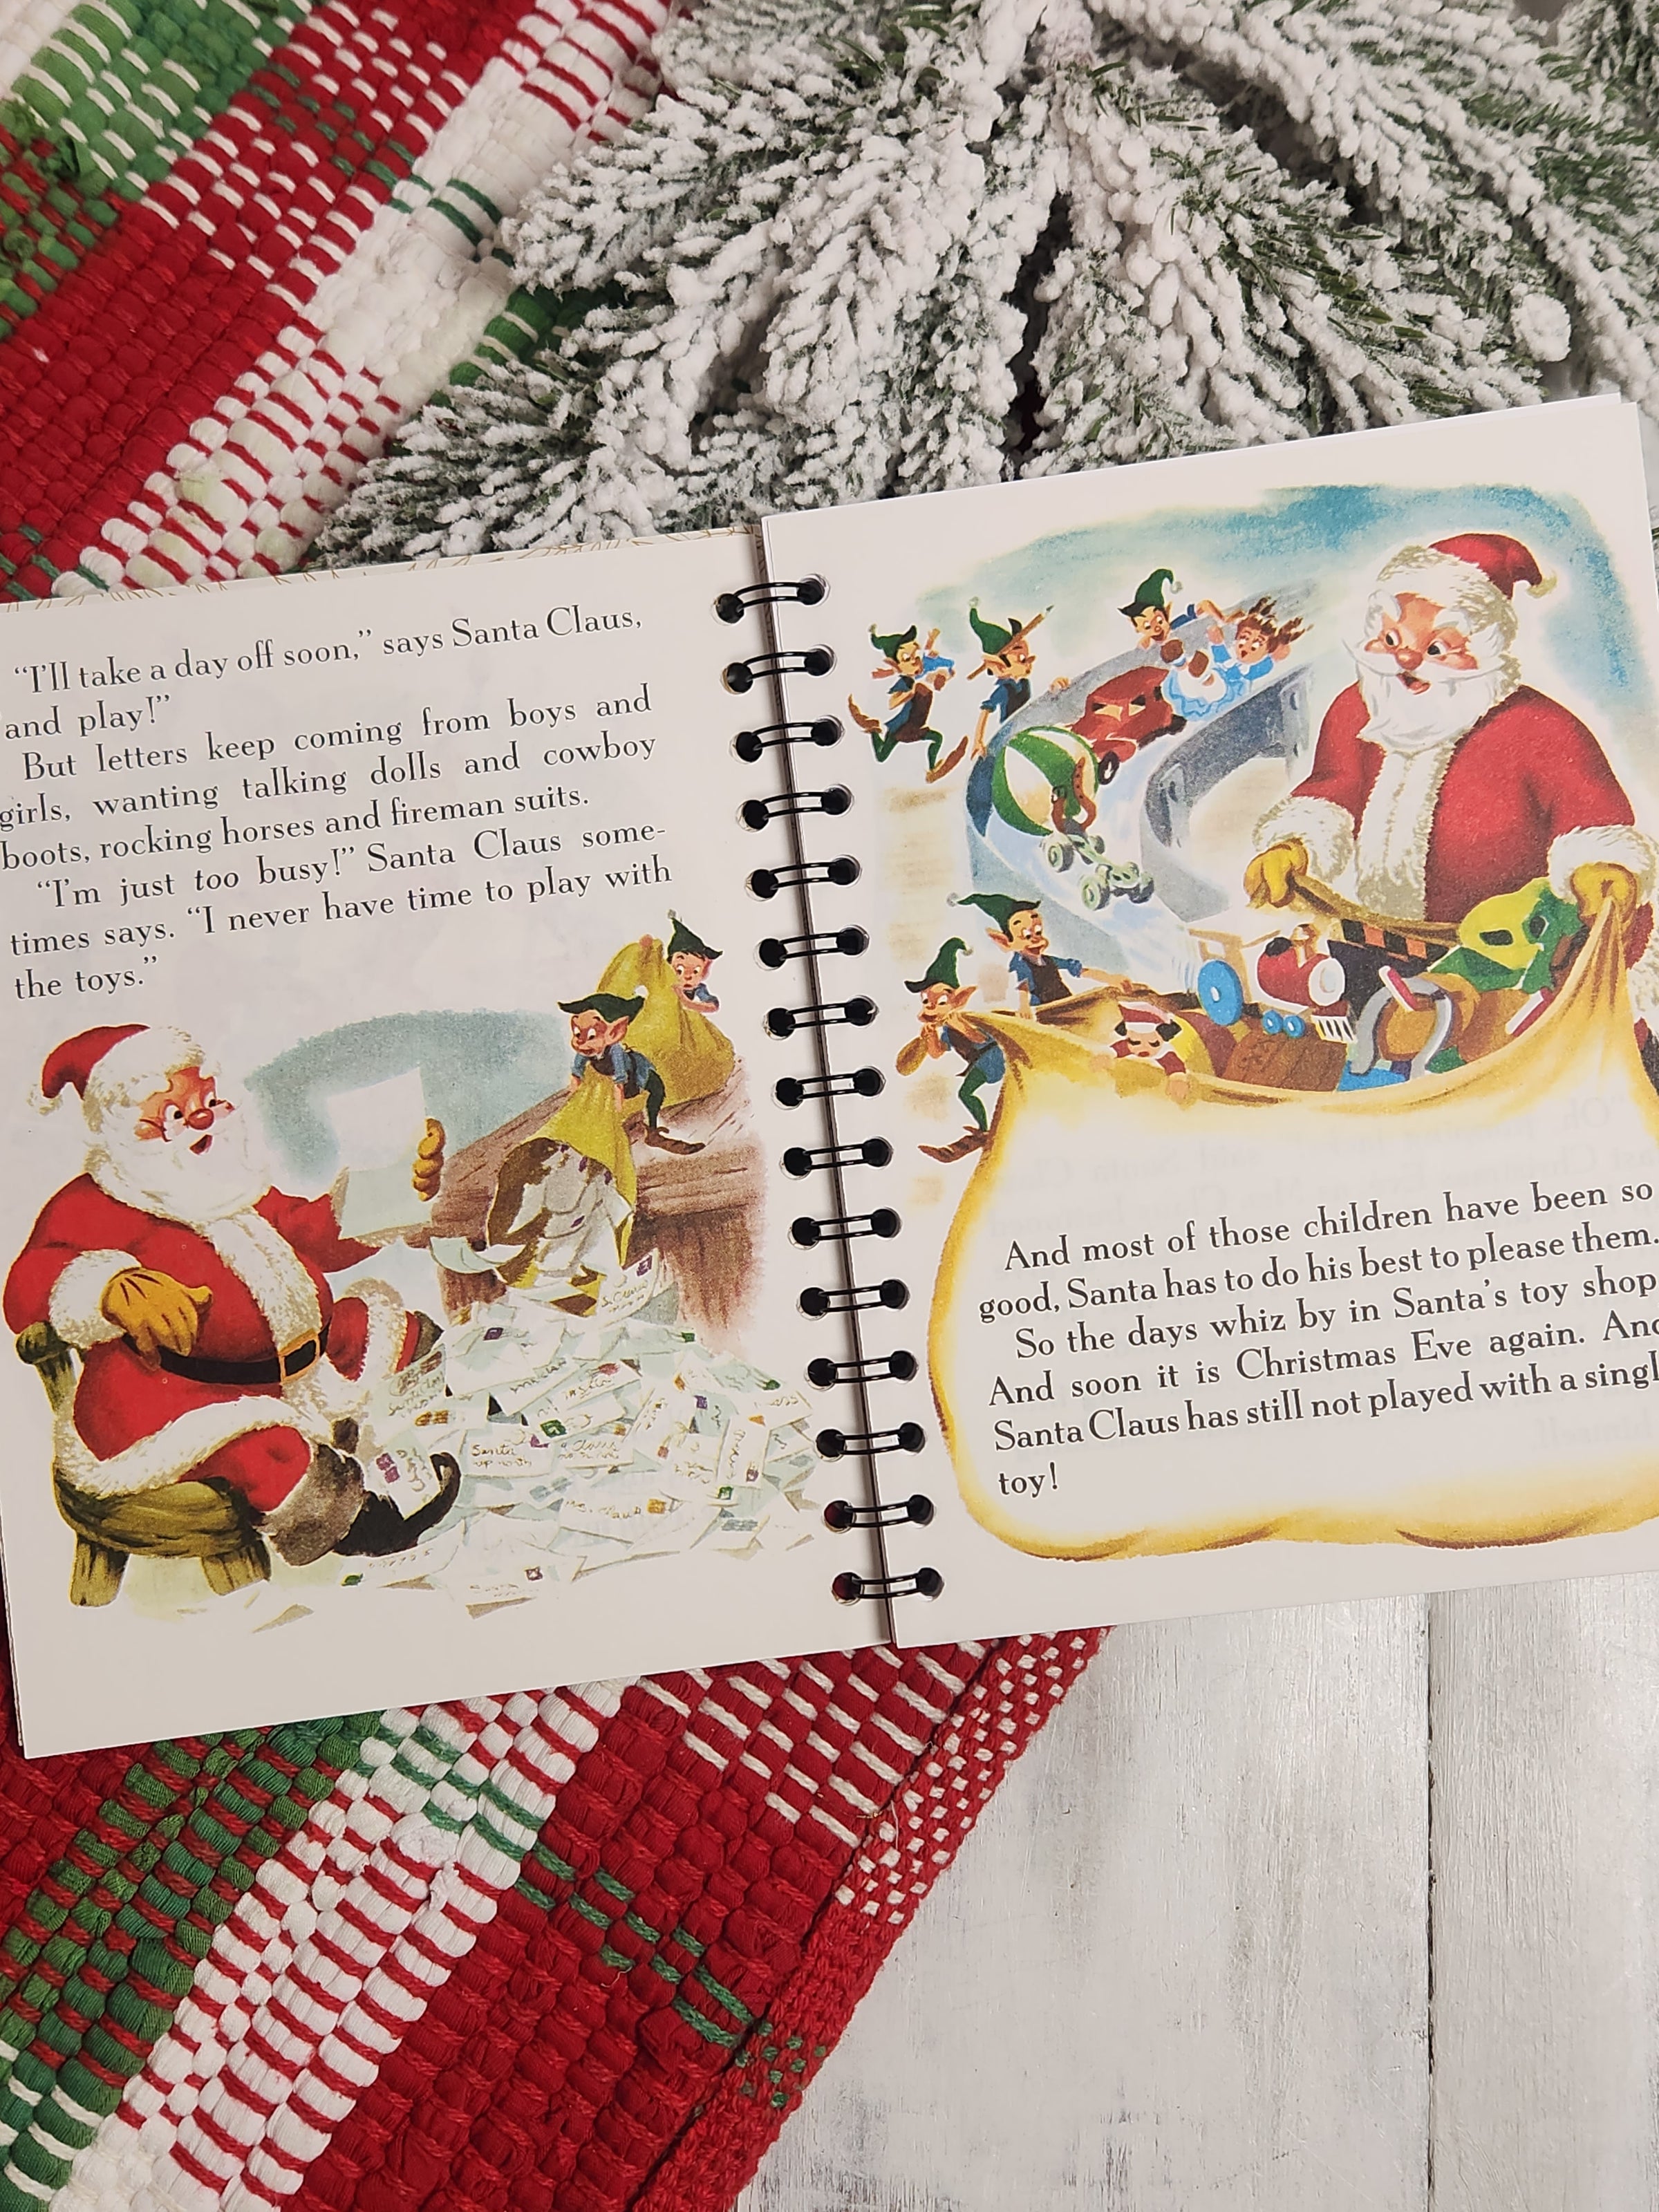 “I’ll take a day off soon,” says Santa Claus,
and play!”
But letters keep coming from boys and
girls, wanting talking dolls and cowboy
boots, rocking horses and fireman suits.
“I’m just too busy!” Santa Claus some-
times says. “I never have time to play with
the toys.”
Santa
And most of those children have been so
good, Santa has to do his best to please them.
So the days whiz by in Santa’s toy shop
And soon it is Christmas Eve again. And
Santa Claus has still not played with a singl
toy!